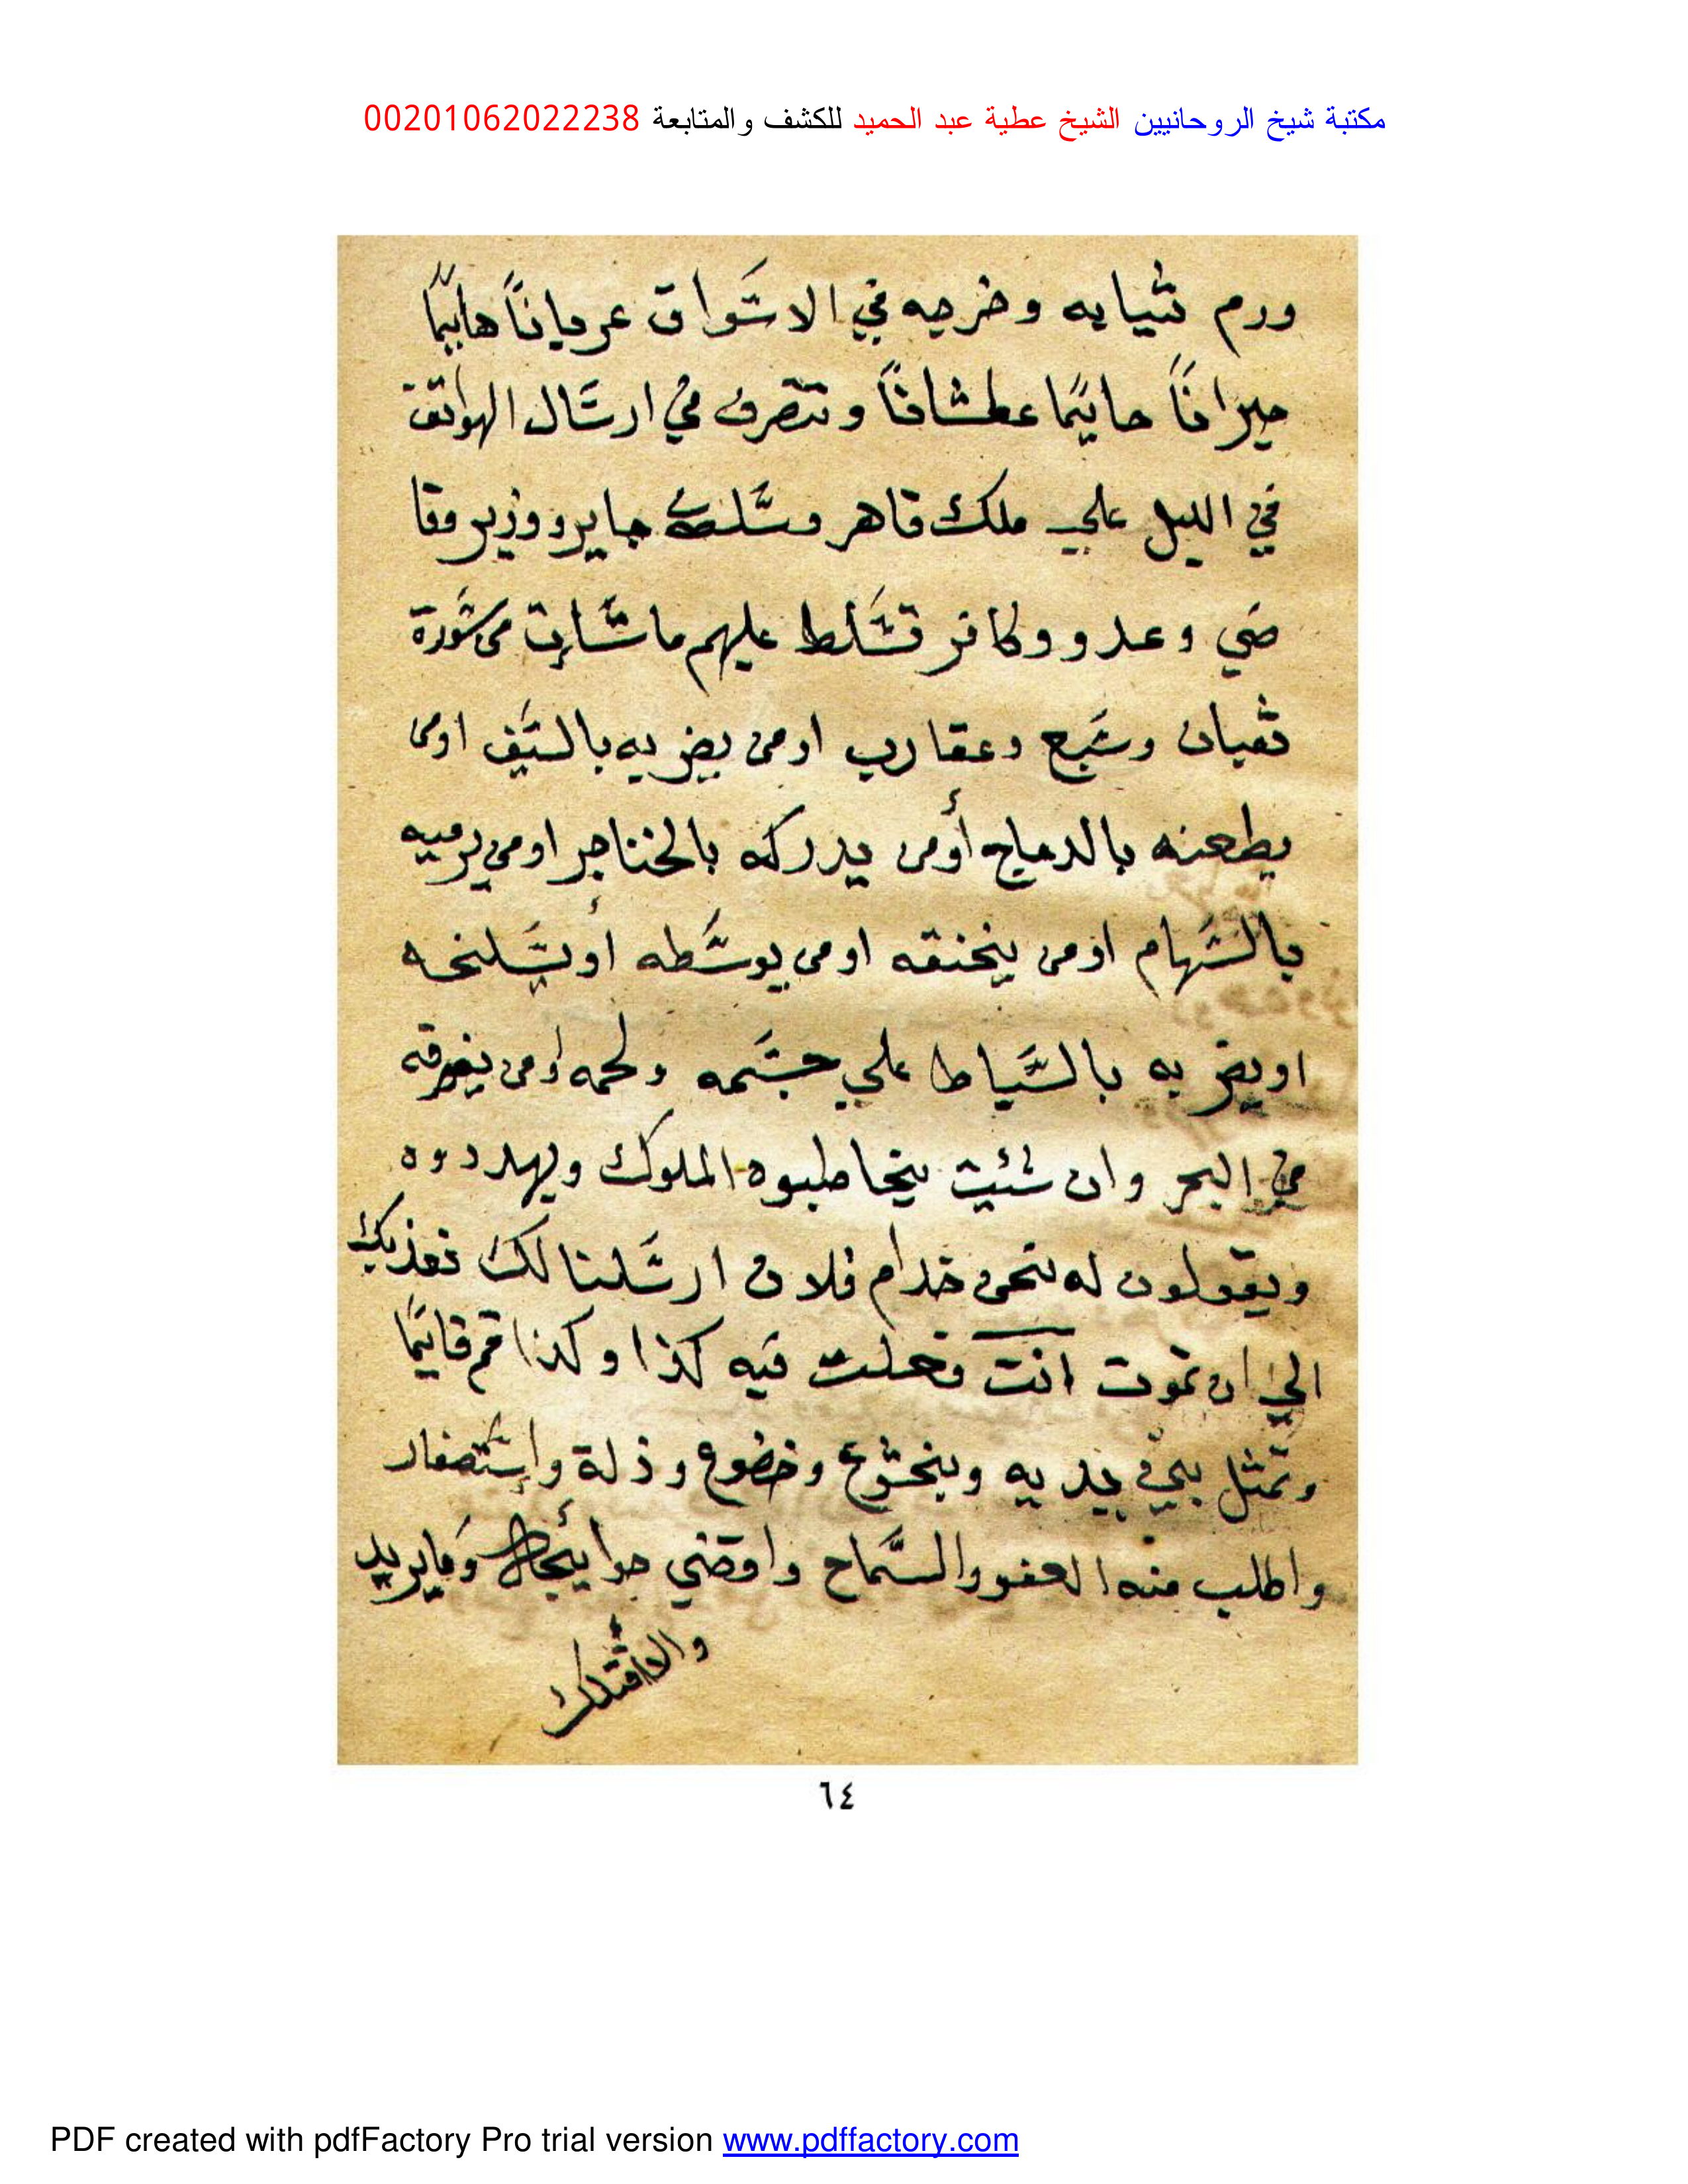 مكتبة شيخ الروحانيين الشيخ عطية عبد الحميد للكشف والمتابعة 00201062022238
ورم ثيابه وخرجه في الاسواق عرياناً هايمًا
حيراناً حايمًا عطشاناً وتتصرف في ارسال الهواتف
في الليل علي ملك قاهر وسلطان جاير ووزير وقا
ضي وعدو وكافر تسلط عليهم ما شات من صورة
ثعبان وسبع وعقارب اومن يضربه بالسيف اومن
يطعنه بالدماج أومن يدركه بالخناجر اومن يرميه
بالسهام اومن يخنقه اومن يوسطه أو يسلخه
او يضربه بالسياط علي جسمه ولحمه أومن يغرقه
في البحر وان شئيت يخاطبوه الملوك ويهددوه
ويقولون له نحن خدام فلان ارسلنا لك نعذبك
الي ان تموت انت فعلت فيه كذا وكذا قم قايمًا
وتمثل بين يديه وبخشوع وخضوع وذلة واستصغار
واطلب منه العفو والسماح واقضي حوايجه وما يريد
والا قتلك
٦٤
PDF created with pdfFactory Pro trial version www.pdffactory.com